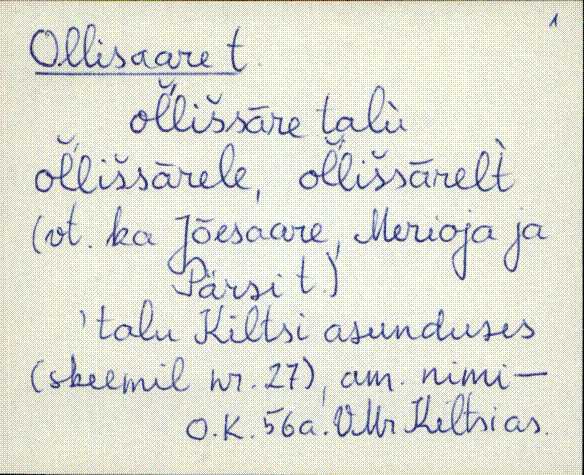 1
Ollisaare t.
ol̆lišsāre talù
ol̆lišsārele, ol̆lišsārelt̀
(vt. ka Jõesaare, Merioja ja
Pärsi t.)
'talu Kiltsi asunduses
(skeemil nr. 27), am. nimi —
O.K. 56a. VMr Kiltsi as.